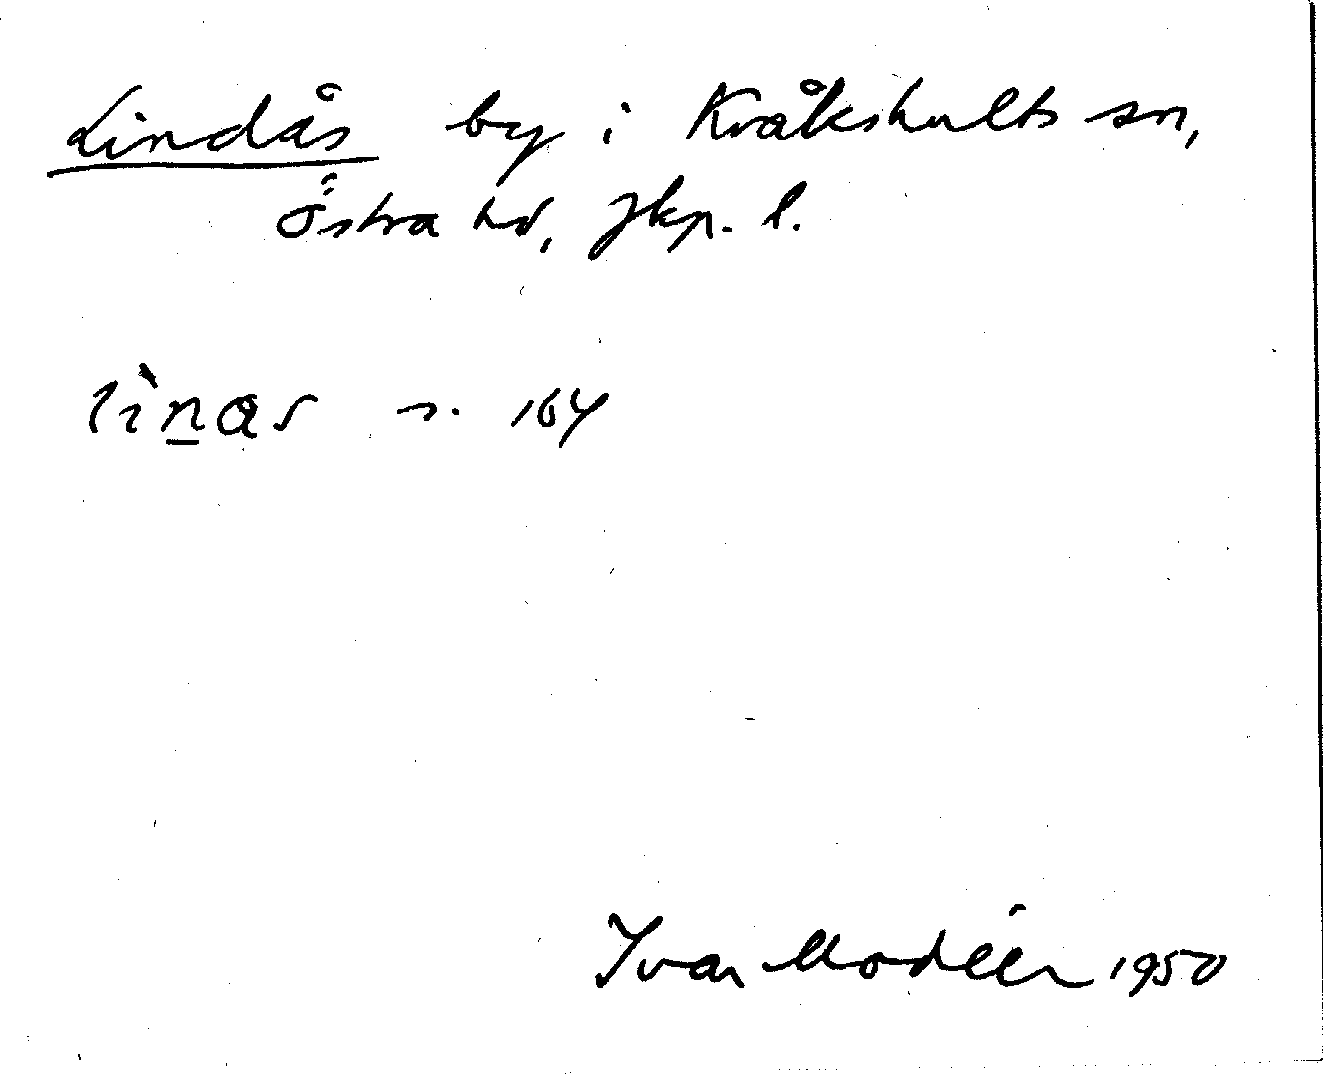 Lindås by i Kråkshults sn,
Östra hd, Jkp. l.
lìn̲as s. 164
Ivar Modéer 1950